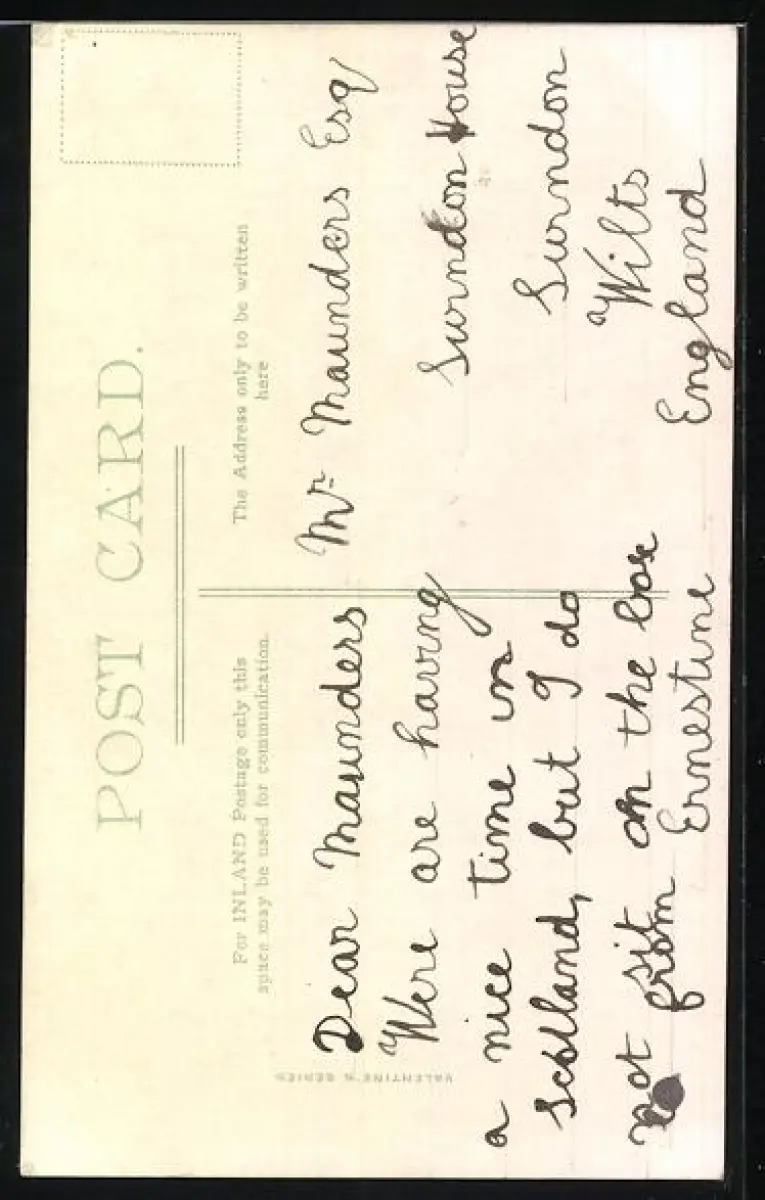 POST CARD.
For INLAND Postage only this
space may be used for communication.
The Address only to be written
here
VALENTINE'S SERIES
Dear Maunders
Were are having
a nice time in
scotland, but I do
not sit on the box
from Ernestine
Mr Maunders Esq
Surndon House
Surndon
Wilts
England